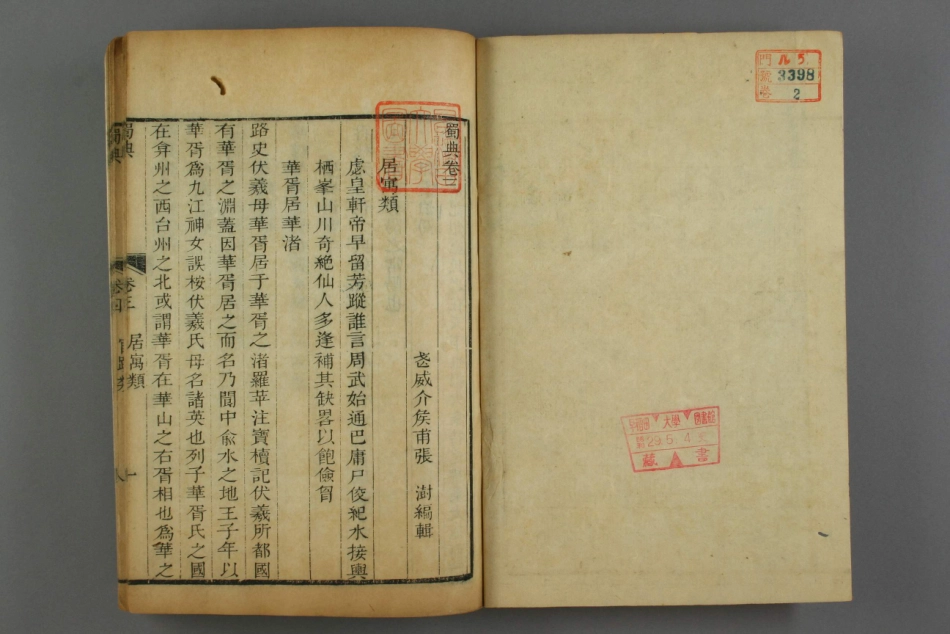 門 ル5
號 3398
卷 2
早稲田 大學 圖書館
29.5.4
藏書
蜀典卷三
武威介侯甫張 澍編輯
居寓類
慮皇軒帝早留芳蹤誰言周武始通巴庸尸佼紀水接輿
栖峯山川奇絶仙人多逢補其缺畧以飽儉胷
華胥居華渚
路史伏羲母華胥居于華胥之渚羅苹注寶櫝記伏羲所都國
有華胥之淵蓋因華胥居之而名乃閬中兪水之地王子年以
華胥爲九江神女誤桉伏羲氏母名諸英也列子華胥氏之國
在弇州之西台州之北或謂華胥在華山之右胥相也爲華之
蜀典 卷三 居寓類 一
蜀典 卷四 八